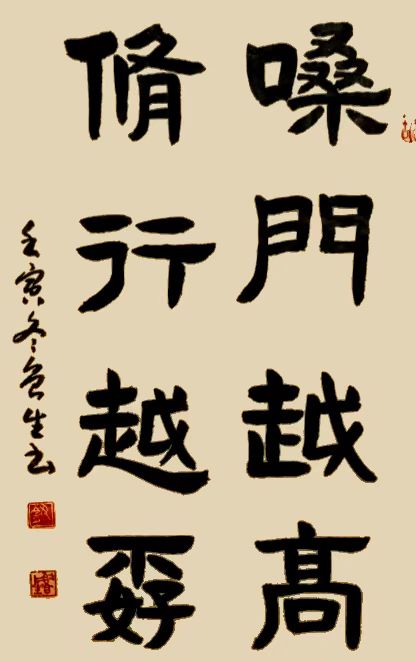 嗓門越高
脩行越孬
壬寅冬生书